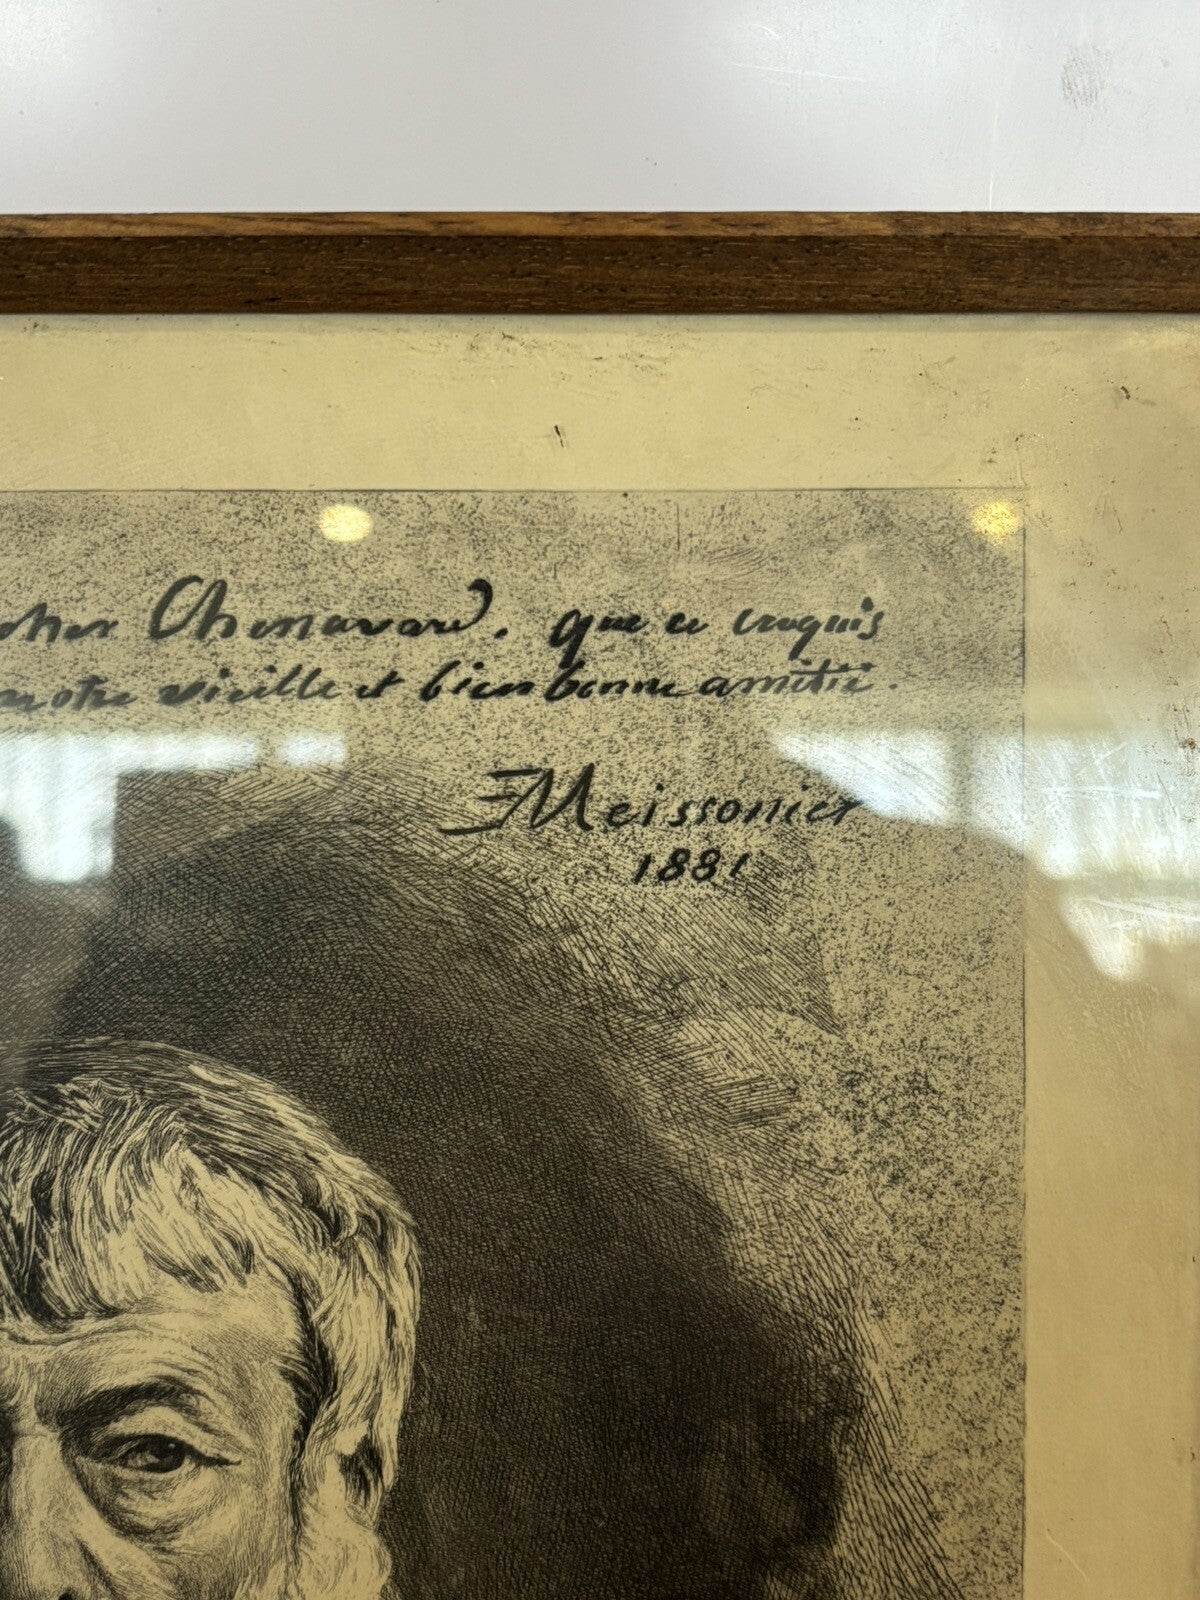 cher Chenavard. que ce croquis
notre vieille et bien bonne amitié.
EMeissonier
1881